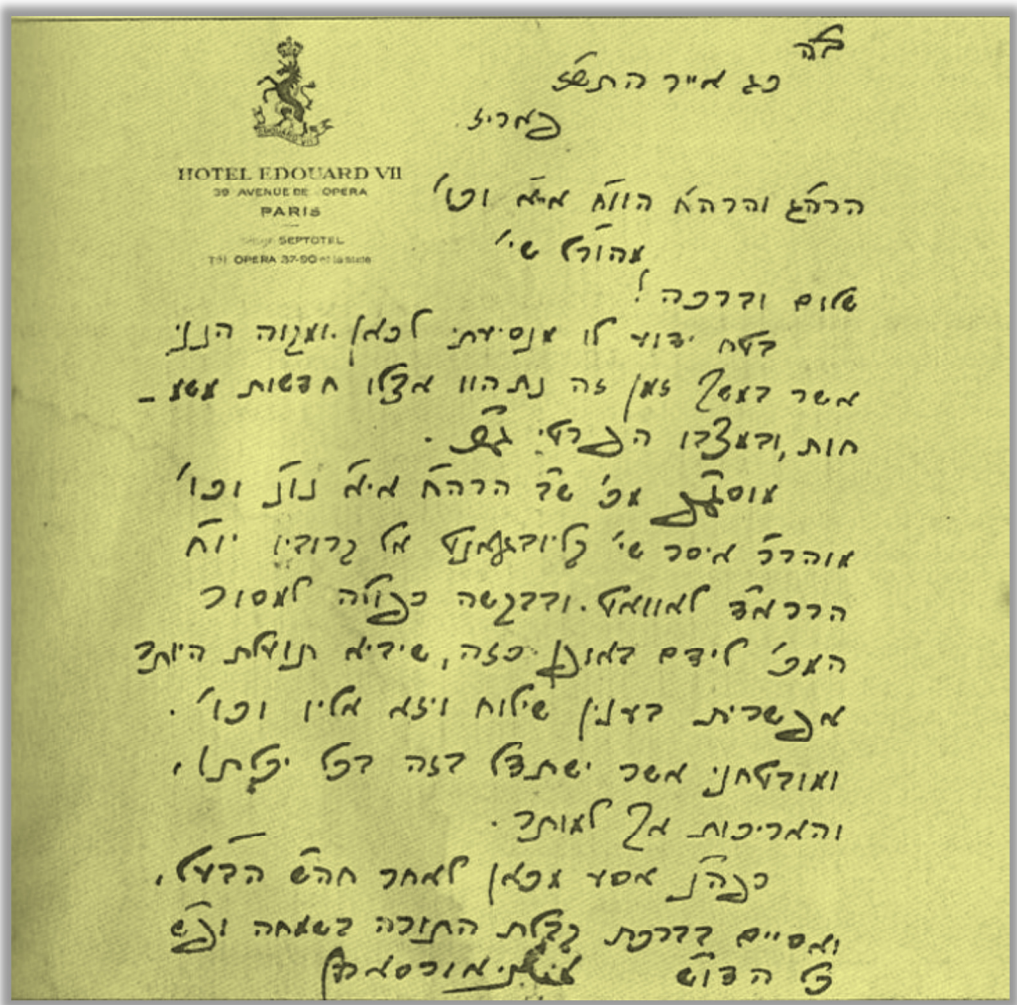 ב"ה
כג אייר ה'תש"ז
פאריז.
HOTEL EDOUARD VII
39 AVENUE DE OPERA
PARIS
SEPTOTEL
Tél. OPERA 37-90 et la suite
הרה"ג והרה"ח הוו"ח אי"א וכו'
שי'
שלום וברכה!
בטח ידוע לו מנסיעתי לכאן. ומקוה הנני
אשר במשך זמן זה נתהוו אצלו חדשות משמ-
חות, ובמצבו הפרטי ג"כ.
מוסג"פ מכ' של הרה"ח אי"א נו"נ וכו'
מוהר"ר איסר שי' קליובגאנט אל קרוביו יו"ח
הרר"א לאוואט. ובבקשה כפולה למסור
המכ' לידם באופן כזה, שיביא תועלת היותר
אפשרית בענין שילוח וויזא אליו וכו'.
ומובטחני אשר ישתדל בזה בכל יכלתו,
והאריכות אך למותר.
כפה"נ אסע מכאן לאחר חה"ש הבע"ל,
ואסיים בברכת קבלת התורה בשמחה ופ"ש
כל הדו"ש